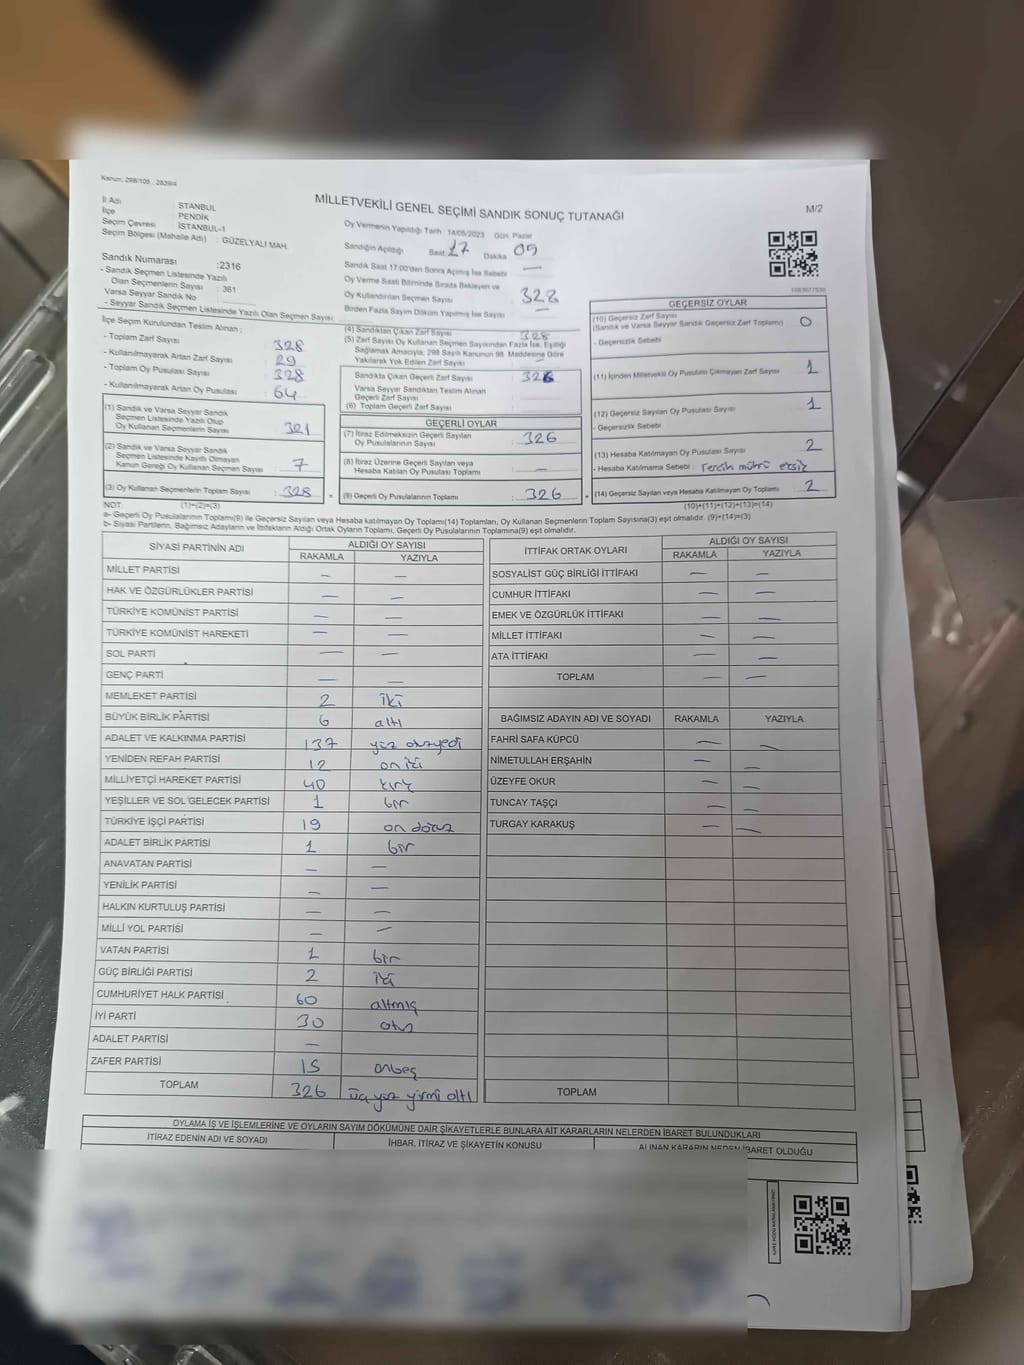 Kanun: 298/105 , 2839/4
MİLLETVEKİLİ GENEL SEÇİMİ SANDIK SONUÇ TUTANAĞI
M/2
İl Adı : STANBUL
İlçe : PENDİK
Seçim Çevresi : İSTANBUL-1
Seçim Bölgesi (Mahalle Adı) : GÜZELYALI MAH.
Sandık Numarası :2316
- Sandık Seçmen Listesinde Yazılı
Olan Seçmenlerin Sayısı : 361
Varsa Seyyar Sandık No
- Seyyar Sandık Seçmen Listesinde Yazılı Olan Seçmen Sayısı:
Oy Vermenin Yapıldığı Tarih : 14/05/2023 Gün: Pazar
Sandığın Açıldığı Saat 17 Dakika 09
Sandık Saat 17:00'den Sonra Açılmış İse Sebebi —
Oy Verme Saati Bitiminde Sırada Bekleyen ve
Oy Kullandırılan Seçmen Sayısı 328
Birden Fazla Sayım Döküm Yapılmış İse Sayısı —
İlçe Seçim Kurulundan Teslim Alınan ;
- Toplam Zarf Sayısı 328
- Kullanılmayarak Artan Zarf Sayısı 29
- Toplam Oy Pusulası Sayısı 328
- Kullanılmayarak Artan Oy Pusulası 64
(1) Sandık ve Varsa Seyyar Sandık
Seçmen Listesinde Yazılı Olup
Oy Kullanan Seçmenlerin Sayısı : 321
(2) Sandık ve Varsa Seyyar Sandık
Seçmen Listesinde Kayıtlı Olmayan
Kanun Gereği Oy Kullanan Seçmen Sayısı : 7
(3) Oy Kullanan Seçmenlerin Toplam Sayısı : 328
(4) Sandıktan Çıkan Zarf Sayısı : 328
(5) Zarf Sayısı Oy Kullanan Seçmen Sayısından Fazla İse, Eşitliği
Sağlamak Amacıyla, 298 Sayılı Kanunun 98. Maddesine Göre
Yakılarak Yok Edilen Zarf Sayısı
Sandıkta Çıkan Geçerli Zarf Sayısı : 326
Varsa Seyyar Sandıktan Teslim Alınan
Geçerli Zarf Sayısı
(6) Toplam Geçerli Zarf Sayısı
GEÇERLİ OYLAR
(7) İtiraz Edilmeksizin Geçerli Sayılan
Oy Pusulalarının Sayısı : 326
(8) İtiraz Üzerine Geçerli Sayılan veya
Hesaba Katılan Oy Pusulası Toplamı : —
(9) Geçerli Oy Pusulalarının Toplamı : 326
GEÇERSİZ OYLAR
(10) Geçersiz Zarf Sayısı
(Sandık ve Varsa Seyyar Sandık Geçersiz Zarf Toplamı) : 0
- Geçersizlik Sebebi
(11) İçinden Milletvekili Oy Pusulası Çıkmayan Zarf Sayısı : 1
(12) Geçersiz Sayılan Oy Pusulası Sayısı : 1
- Geçersizlik Sebebi
(13) Hesaba Katılmayan Oy Pusulası Sayısı : 2
- Hesaba Katılmama Sebebi : Tercih mührü eksiz
(14) Geçersiz Sayılan veya Hesaba Katılmayan Oy Toplamı : 2
NOT: (1)+(2)=(3) (10)+(11)+(12)+(13)=(14)
a- Geçerli Oy Pusulalarının Toplamı(9) ile Geçersiz Sayılan veya Hesaba katılmayan Oy Toplamı(14) Toplamları, Oy Kullanan Seçmenlerin Toplam Sayısına(3) eşit olmalıdır. (9)+(14)=(3)
b- Siyasi Partilerin, Bağımsız Adayların ve İttifakların Aldığı Ortak Oyların Toplamı, Geçerli Oy Pusulalarının Toplamına(9) eşit olmalıdır.
SİYASİ PARTİNİN ADI ALDIĞI OY SAYISI
RAKAMLA YAZIYLA
MİLLET PARTİSİ — —
HAK VE ÖZGÜRLÜKLER PARTİSİ — —
TÜRKİYE KOMÜNİST PARTİSİ — —
TÜRKİYE KOMÜNİST HAREKETİ — —
SOL PARTİ — —
GENÇ PARTİ — —
MEMLEKET PARTİSİ 2 iki
BÜYÜK BİRLİK PARTİSİ 6 altı
ADALET VE KALKINMA PARTİSİ 137 yüz otuzyedi
YENİDEN REFAH PARTİSİ 12 oniki
MİLLİYETÇİ HAREKET PARTİSİ 40 kırk
YEŞİLLER VE SOL GELECEK PARTİSİ 1 bir
TÜRKİYE İŞÇİ PARTİSİ 19 on dokuz
ADALET BİRLİK PARTİSİ 1 bir
ANAVATAN PARTİSİ — —
YENİLİK PARTİSİ — —
HALKIN KURTULUŞ PARTİSİ — —
MİLLİ YOL PARTİSİ — —
VATAN PARTİSİ 1 bir
GÜÇ BİRLİĞİ PARTİSİ 2 iki
CUMHURİYET HALK PARTİSİ 60 altmış
İYİ PARTİ 30 otuz
ADALET PARTİSİ —
ZAFER PARTİSİ 15 onbeş
TOPLAM 326 üçyüz yirmi altı
İTTİFAK ORTAK OYLARI ALDIĞI OY SAYISI
RAKAMLA YAZIYLA
SOSYALİST GÜÇ BİRLİĞİ İTTİFAKI — —
CUMHUR İTTİFAKI — —
EMEK VE ÖZGÜRLÜK İTTİFAKI — —
MİLLET İTTİFAKI — —
ATA İTTİFAKI — —
TOPLAM — —
BAĞIMSIZ ADAYIN ADI VE SOYADI RAKAMLA YAZIYLA
FAHRİ SAFA KÜPCÜ — —
NİMETULLAH ERŞAHİN — —
ÜZEYFE OKUR — —
TUNCAY TAŞÇI — —
TURGAY KARAKUŞ — —
TOPLAM
OYLAMA İŞ VE İŞLEMLERİNE VE OYLARIN SAYIM DÖKÜMÜNE DAİR ŞİKAYETLERLE BUNLARA AİT KARARLARIN NELERDEN İBARET BULUNDUKLARI
İTİRAZ EDENİN ADI VE SOYADI İHBAR, İTİRAZ VE ŞİKAYETİN KONUSU ALINAN KARARIN NEDEN İBARET OLDUĞU